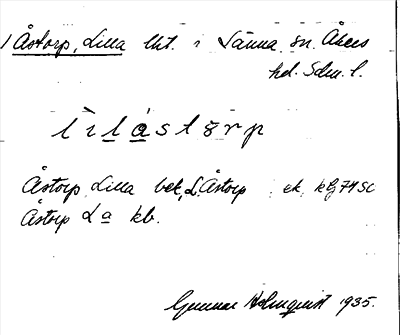 Åstorp, Lilla lht. i Länna sn. Åkers
hd. Sdm. l.
lìlàstòrp
Åstorp Lilla bek, L. Åstorp ek, kbg 74 SO
Åstorp La kb.
Gunnar Holmquist 1935.